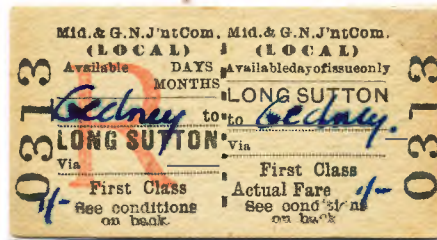 0313
Mid. & G. N. J'nt Com.
(LOCAL)
Available DAYS
MONTHS
Gedney to
LONG SUTTON
Via
First Class
1/-
See conditions
on back
R
Mid. & G. N. J'nt Com.
(LOCAL)
Available day of issue only
LONG SUTTON
to Gedney.
Via
First Class
Actual Fare 1/-
See conditions
on back
0313